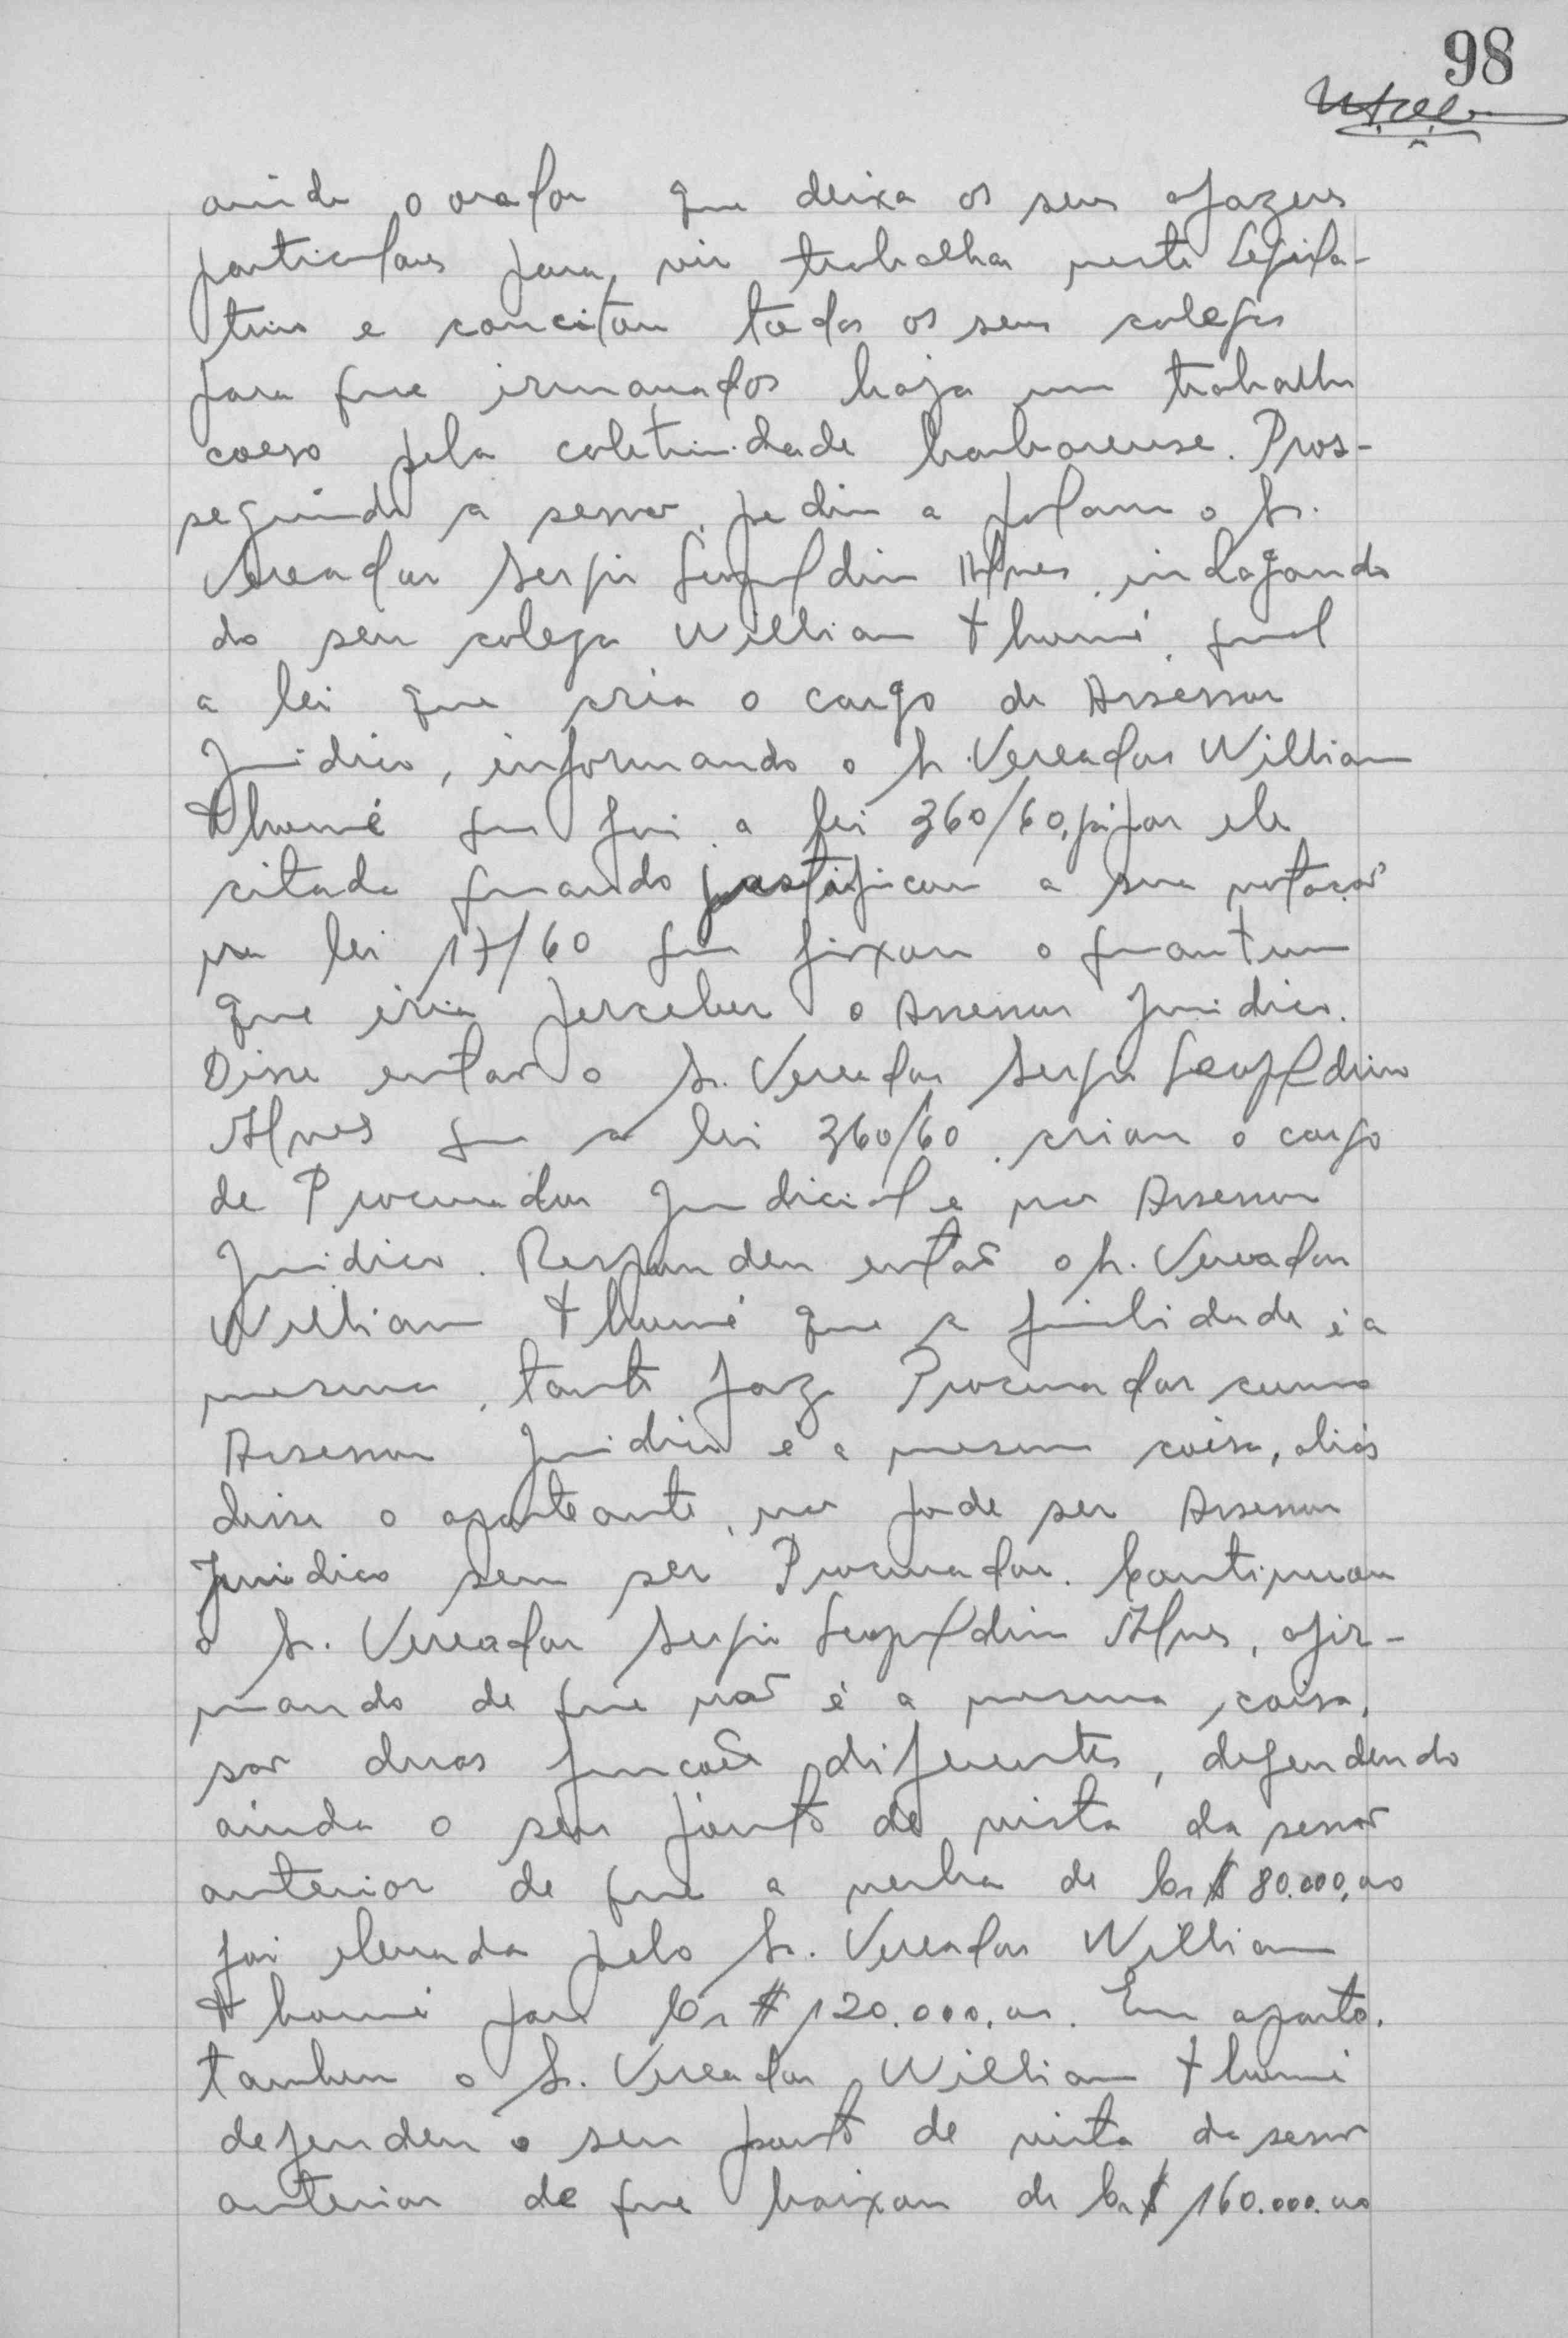 98
ainda o orador que deixa os seus afazeres
particulares para, vir trabalhar neste Legisla-
tivo e concitou todos os seus colegas
para que irmanados haja um trabalho
coeso pela coletividade barbarense. Pros-
seguindo a sessão, pediu a palavra o Sr.
Vereador Sergio Leopoldino Alves, indagando
do seu colega William Thomé, qual
a lei que cria o cargo de Assessor
Juridico, informando o Sr. Vereador William
Thomé que foi a lei 360/60, já por ele
citada quando justificou a sua votação
na lei 17/60 que fixou o quantum
que iria perceber o Assessor Juridico.
Disse então o Sr. Vereador Sergio Leopoldino
Alves que a lei 360/60, criou o cargo
de Procurador Judicial e não Assessor
Juridico. Respondeu então o Sr. Vereador
William Thomé que a finalidade é a
mesma, tanto faz Procurador como
Assessor Juridico é a mesma coisa, aliás
disse o aparteante, não pode ser Assessor
Juridico sem ser Procurador. Continuou
o Sr. Vereador Sergio Leopoldino Alves, afir-
mando de que não é a mesma coisa,
são duas funções diferentes, defendendo
ainda o seu ponto de vista da sessão
anterior de que a verba de Cr$ 80.000,00
foi elevada pelo Sr. Vereador William
Thomé para Cr$ 120.000,00. Em aparte,
tambem o Sr. Vereador William Thomé
defendeu o seu ponto de vista da sessão
anterior de que baixou de Cr$ 160.000,00